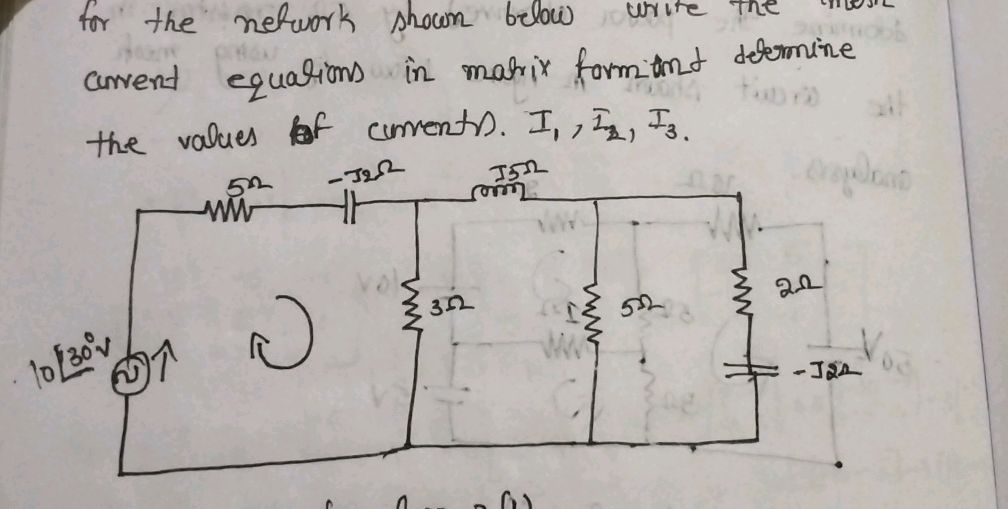 for the network shown below write the mesh
current equations in matrix form and determine
the values of currents. I₁, I₂, I₃.
5Ω
-J2Ω
J5Ω
3Ω
5Ω
2Ω
10∠30°V
-J2Ω